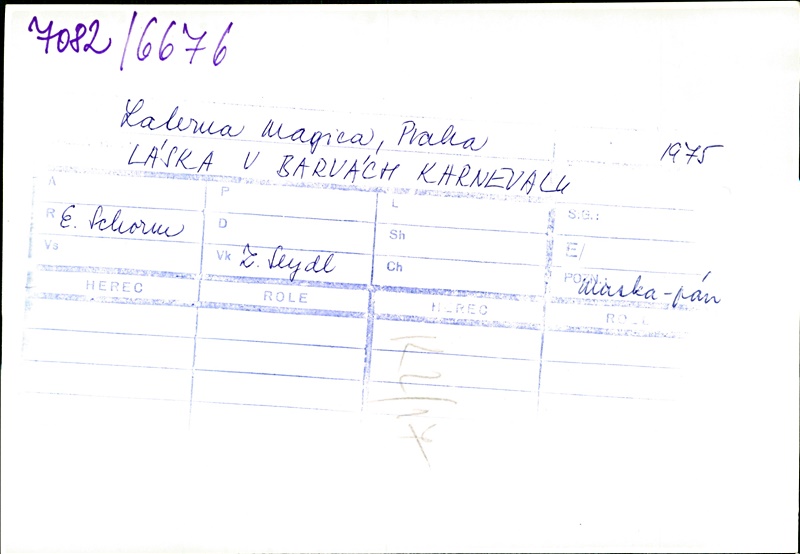 7082/6676
Laterna Magica, Praha 1975
LÁSKA V BARVÁCH KARNEVALU
A P L S.G.:
R E. Schorm D Sh E/
Vs Vk Z. Seydl Ch POZN. maska-pán
HEREC ROLE HEREC ROLE